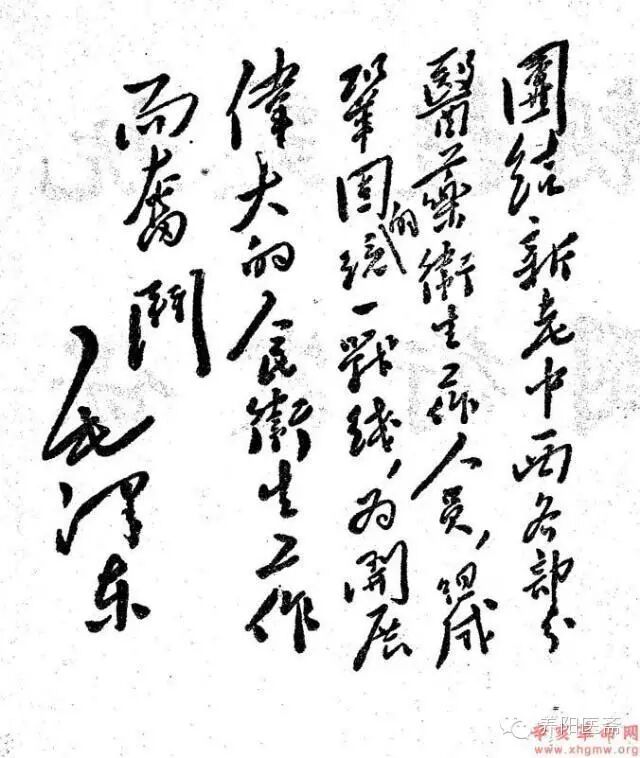 團結新老中西各部分
醫藥衛生工作人員，組成
鞏固的統一戰綫，为開展
偉大的人民衛生工作
而奮鬥
毛澤东
养阳医斋
辛亥革命网
www.xhgmw.org